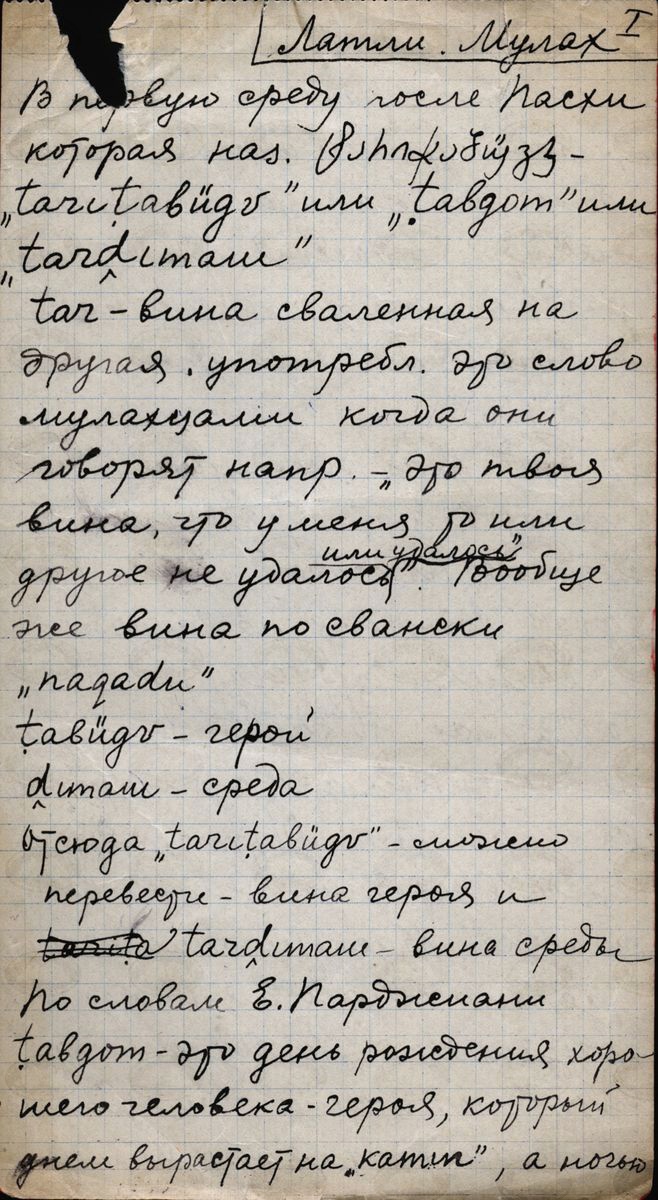 Латли. Мулах I
В первую среду после Пасхи
которая наз.
„tarıṭabügv" или „ṭавдот" или
„tardımaш"
tar – вина сваленная на
другая. употребл. это слово
мулахцами когда они
говорят напр. – „это твоя
вина, что у меня то или
или удалось"
другое не удалось". Вообще
же вина по свански
„naqadu"
ṭabügv – герой
dımaш – среда
Отсюда „tarıṭabügv" – можно
перевести – вина героя и
tarıṭa tardımaш – вина среды
По словам Е. Парджиани
ṭавдот – это день рождения хоро-
шего человека – героя, который
днем вырастает на „катт", а ночью